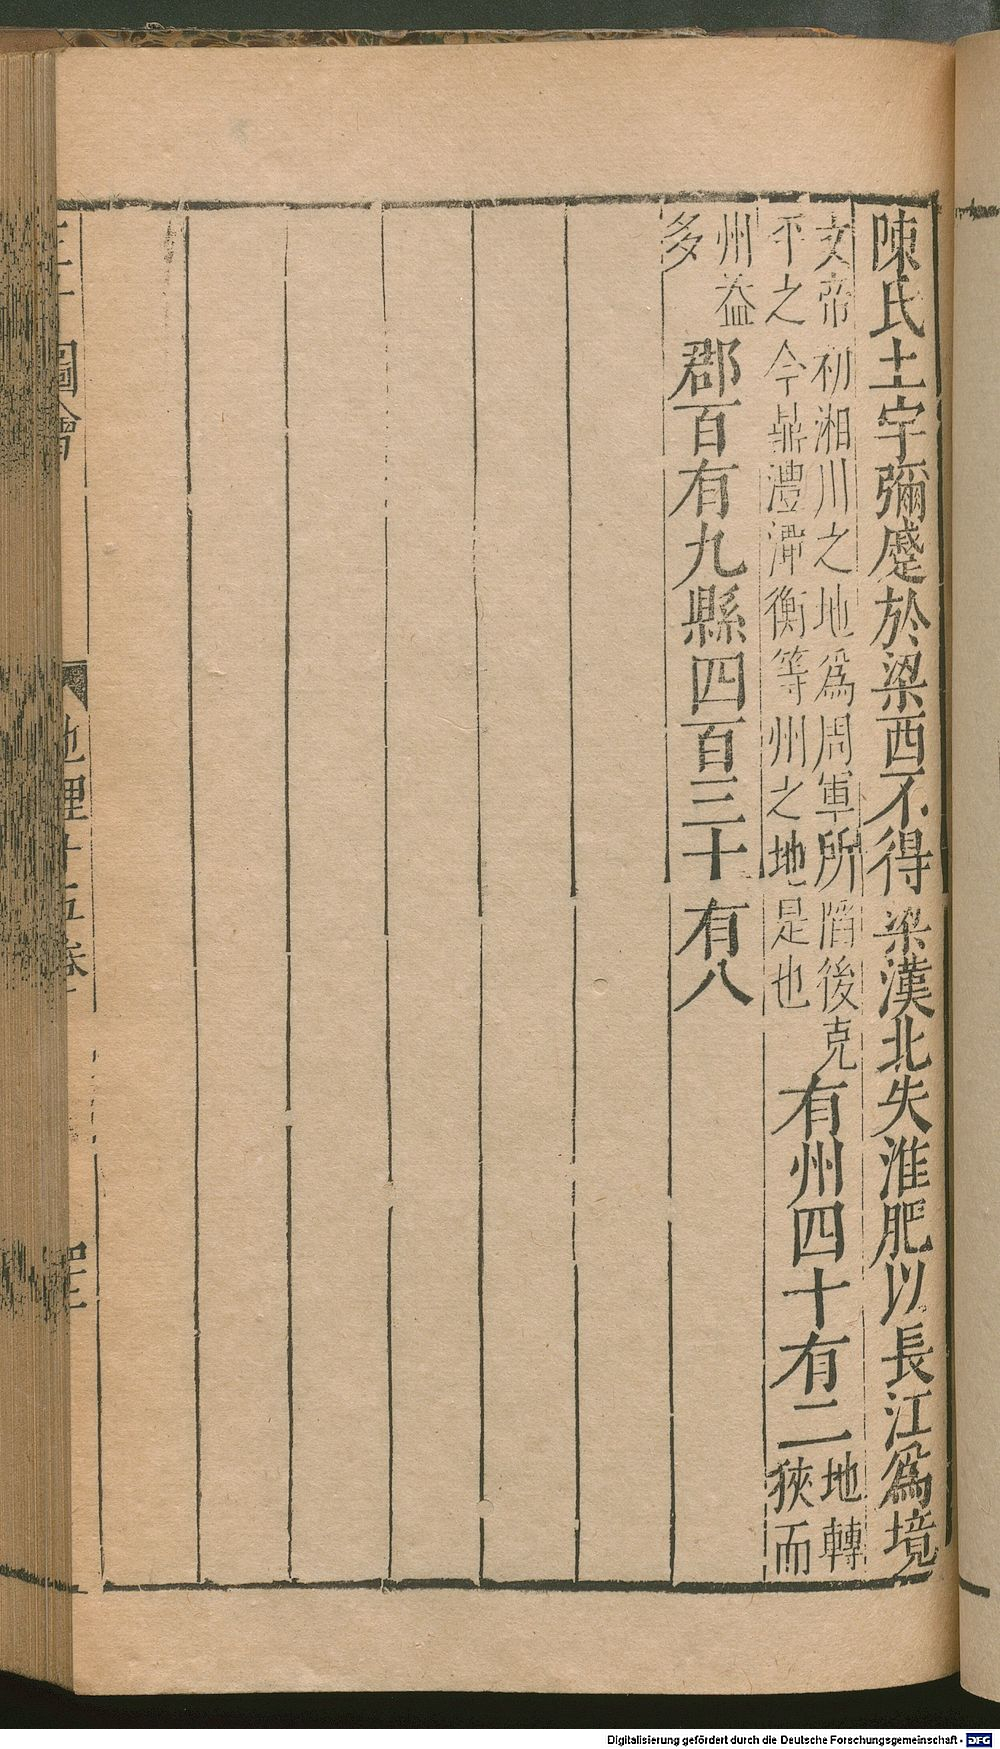 陳氏土宇彌蹙於梁西不得梁漢北失淮肥以長江爲境
文帝初湘川之地爲周軍所陷後克
平之今鼎澧潭衡等州之地是也
有州四十有二
地轉
狹而
州益
多
郡百有九縣四百三十有八
三才圖會
地理十五卷
Digitalisierung gefördert durch die Deutsche Forschungsgemeinschaft - DFG